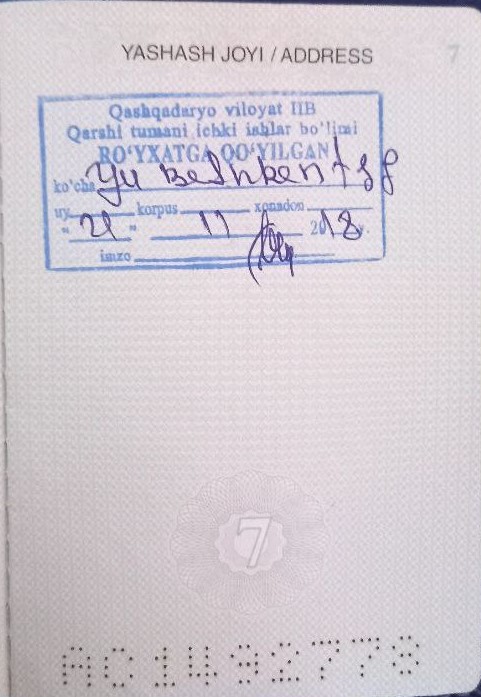 YASHASH JOYI / ADDRESS 7
Qashqadaryo viloyat IIB
Qarshi tumani ichki ishlar bo'limi
RO'YXATGA QO'YILGAN
ko'cha Yu Beshkent
uy korpus xonadon
" 21 " 11 2018 y.
imzo
7
AC1492778